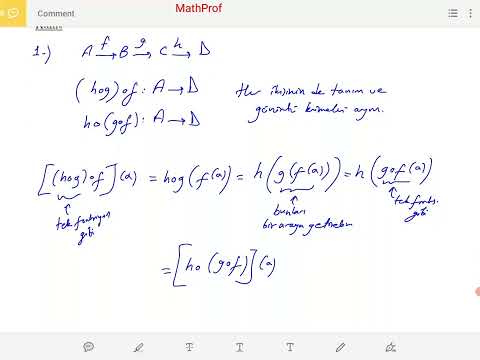 Comment
MathProf
1-) A →f B →g C →h D
(hog)of : A → D
ho(gof) : A → D
Her ikisinin de tanım ve
görüntü kümeleri aynı.
[(hog)of](a) = hog(f(a)) = h(g(f(a))) = h(gof(a))
tek fonksiyon
gibi
bunları
bir araya getirelim
tek fonks.
gibi
= [ho(gof)](a)